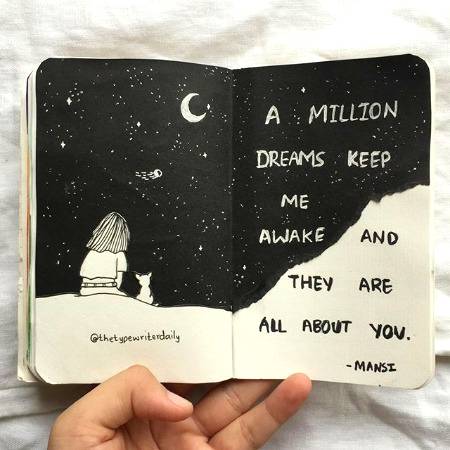 @thetypewriterdaily
A MILLION
DREAMS KEEP
ME
AWAKE AND
THEY ARE
ALL ABOUT YOU.
-MANSI